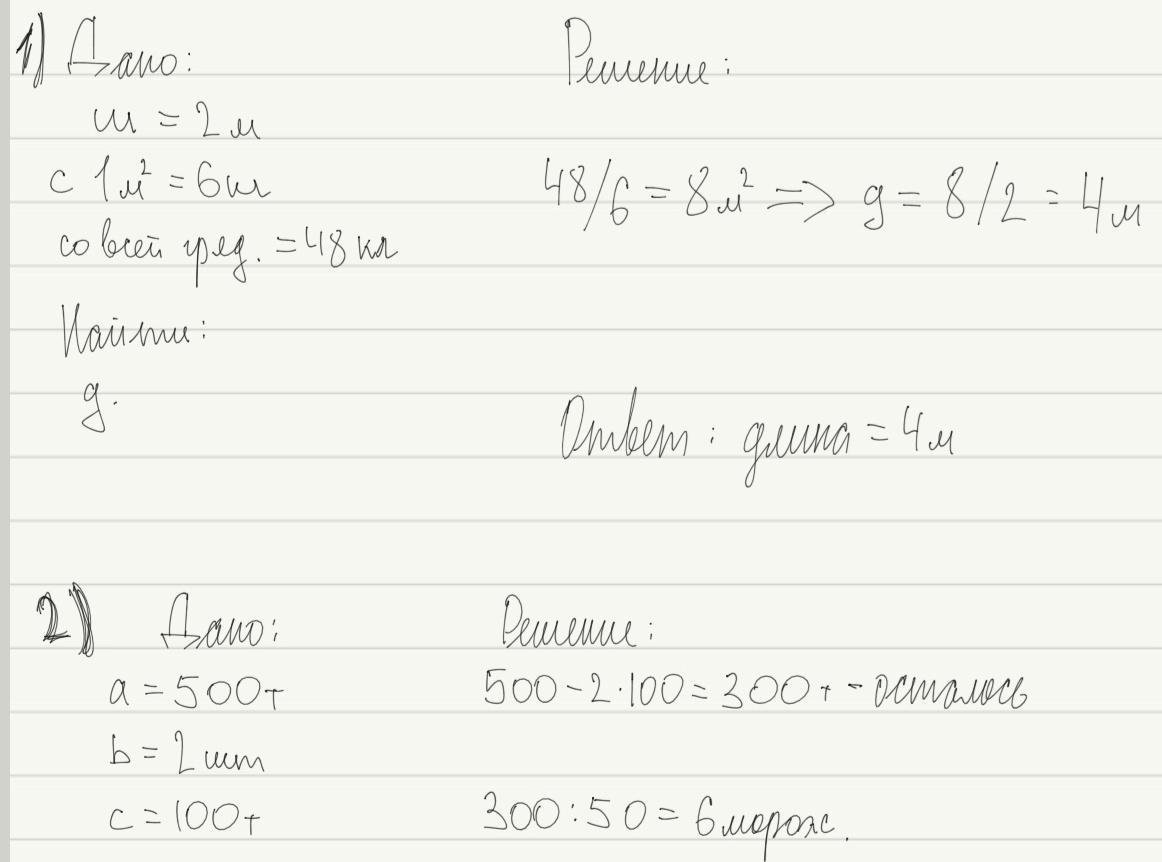 1) Дано: Решение:
ш = 2 м
с 1 м² = 6 кл 48/6 = 8 м² => д = 8/2 = 4 м
со всей гряд. = 48 кл
Найти:
д.
Ответ: длина = 4 м
2) Дано: Решение:
a = 500т 500 - 2·100 = 300т - осталось
b = 2 шт
c = 100т 300:50 = 6 морож.